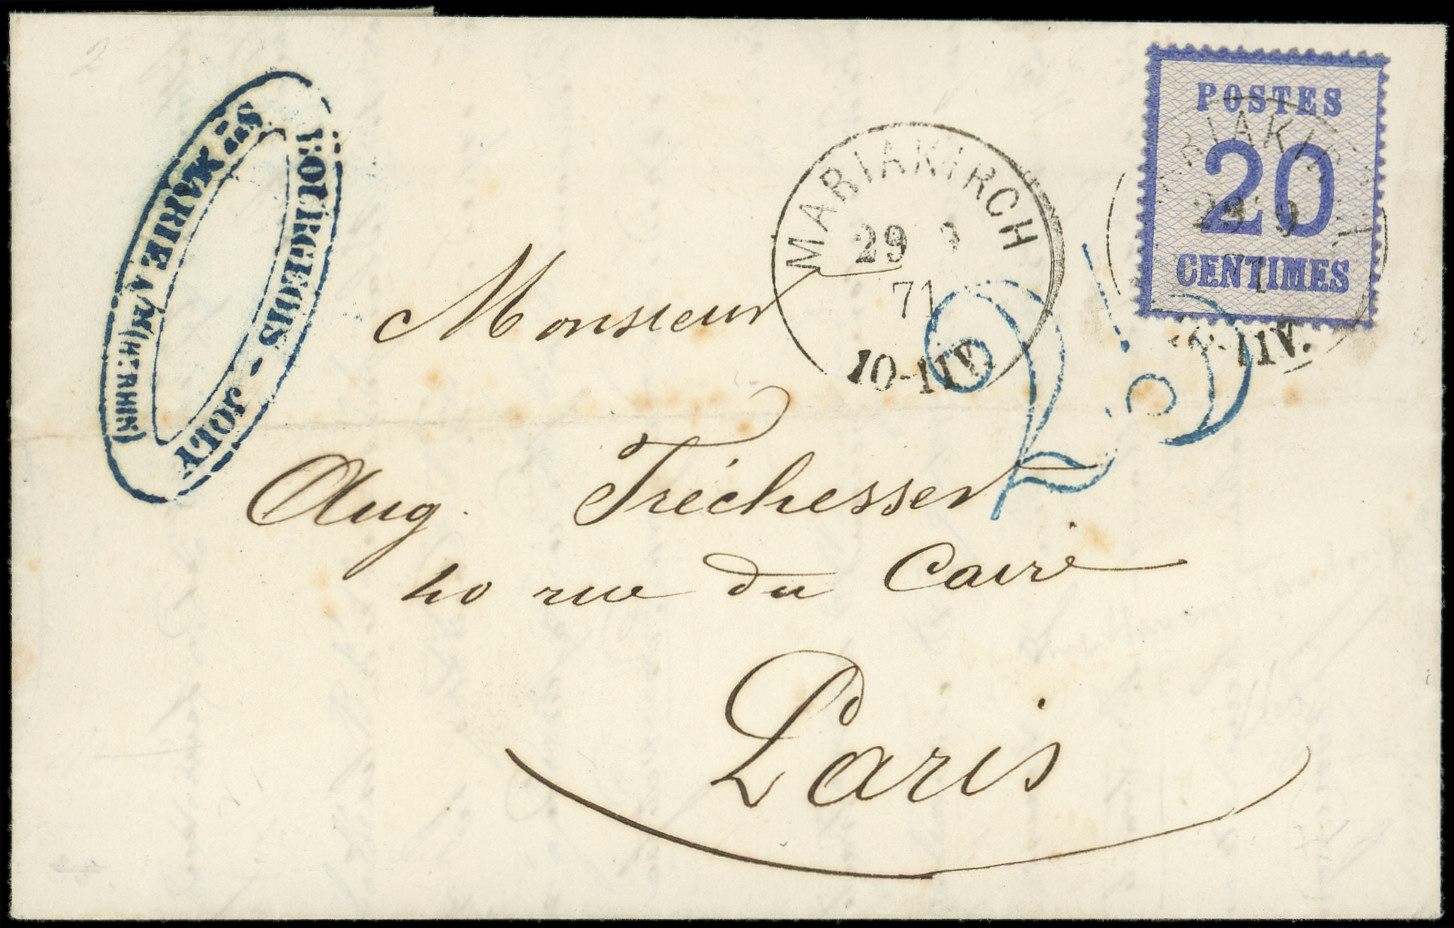 BOURGEOIS - JOLY
STE MARIE A/M (Ht RHIN)
MARIAKIRCH
29 9
71
10-11 V.
POSTES
20
CENTIMES
29 9
10-11 V.
Monsieur
Aug. Tréchesser
40 rue du Caire
Paris